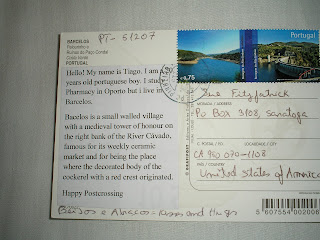 BARCELOS
PORTUGAL
PT-51207
Hello! My name is Tiago. I am
years old portuguese boy. I study
Pharmacy in Oporto but i live in
Barcelos.
Bacelos is a small walled village
with a medieval tower of honour on
the right bank of the River Cávado,
famous for its weekly ceramic
market and for being the place
where the decorated body of the
cockerel with a red crest originated.
Happy Postcrossing
Beijos e Abraços = kisses and Hugs
€0,75
Portugal
Sue Fitzpatrick
MORADA / ADDRESS
Po Box 3108, Saratoga
C. POSTAL / P.O. LOCALIDADE / CITY
CA 950 070-1108
PAÍS / COUNTRY
United States of America
5 607554 002006